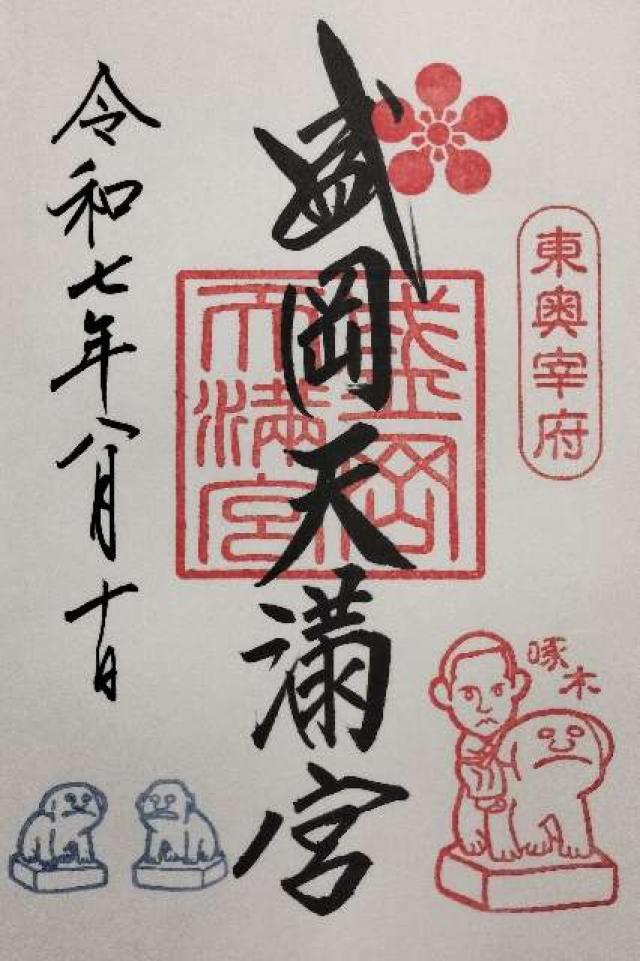 東奥宰府
盛岡天満宮
盛岡
天満宮
令和七年八月十日
啄木